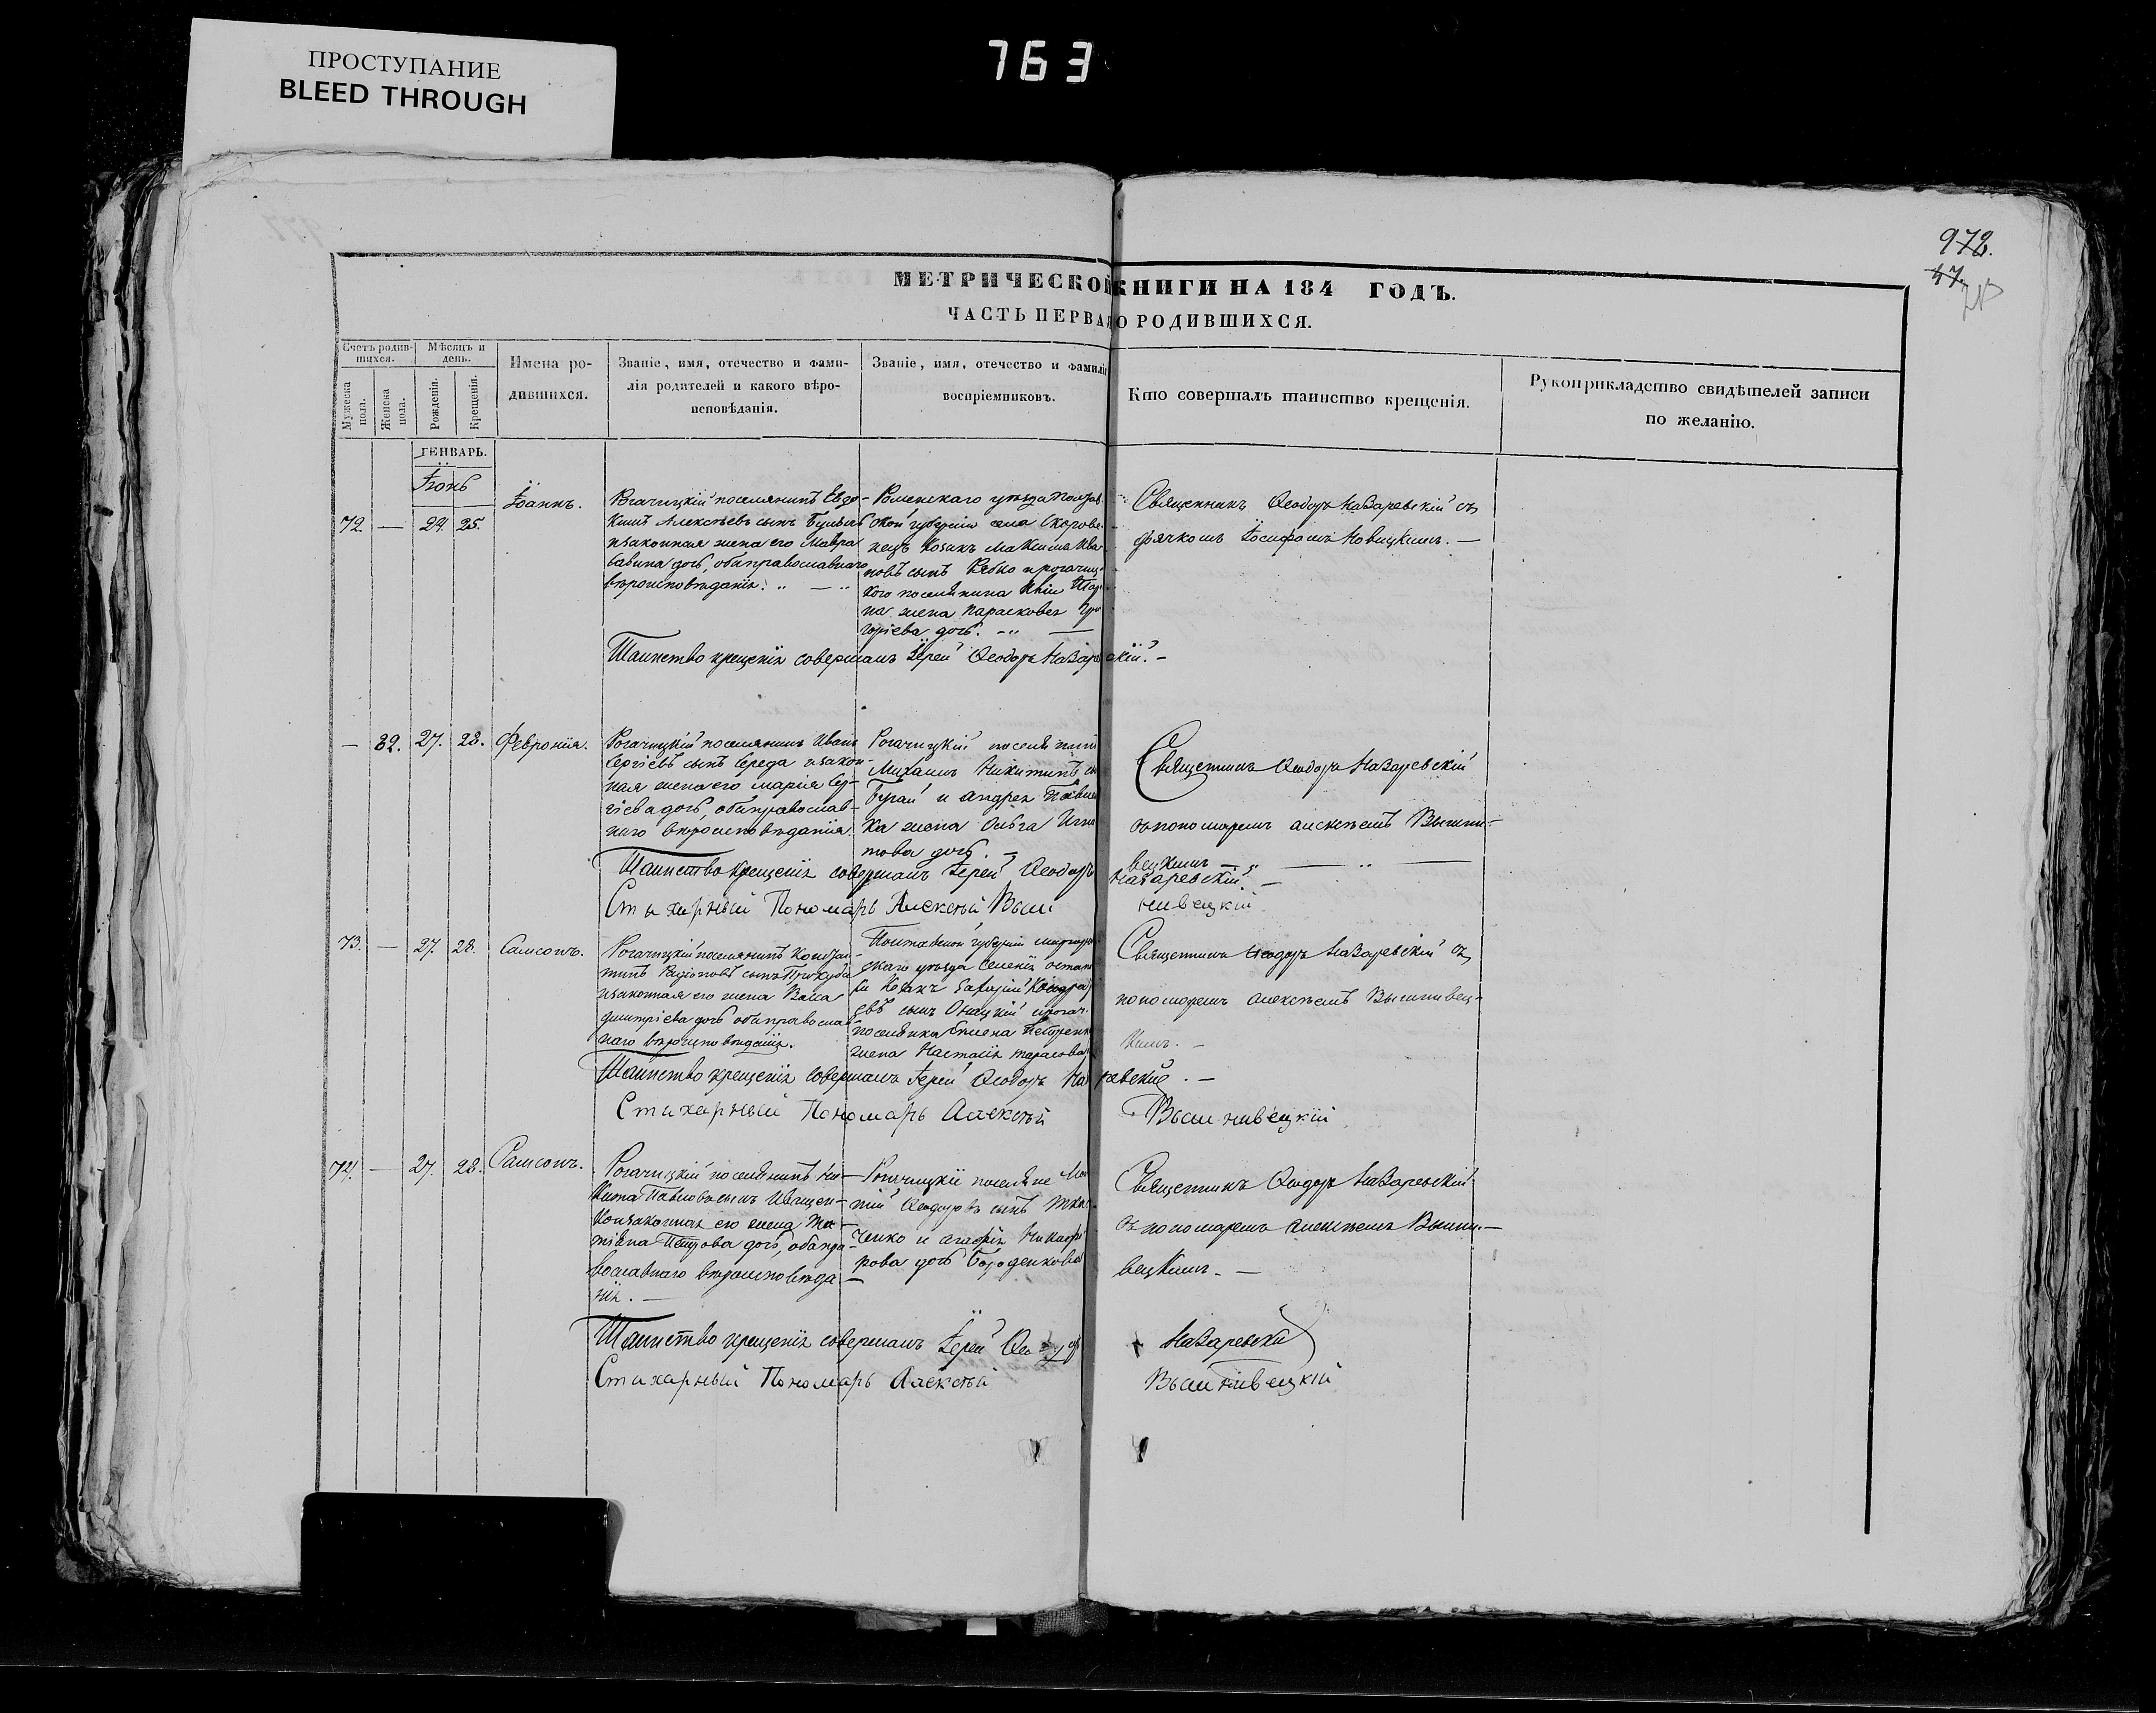 763
ПРОСТУПАНИЕ
BLEED THROUGH
972.
47.
МЕТРИЧЕСКОЙ КНИГИ НА 184 ГОДЪ.
ЧАСТЬ ПЕРВАЯ О РОДИВШИХСЯ.
Счетъ родив-
шихся.
Мужеска
пола.
Женска
пола.
Мѣсяцъ и
день.
Рожденія.
Крещенія.
Имена ро-
дившихся.
Званіе, имя, отечество и фами-
лія родителей и какого вѣро-
исповѣданія.
Званіе, имя, отечество и фамилія
воспріемниковъ.
Кто совершалъ таинство крещенія.
Рукоприкладство свидѣтелей записи
по желанію.
ГЕНВАРЬ.
Іюнь
72. — 24. 25.
Іоаннъ.
Рогачицкій поселянинъ Евдо-
кимъ Алексѣевъ сынъ
изаконная жена его Мавра
Савина дочь, оба православнаго
вѣроисповѣданія.
Роменскаго уѣзда Полтав
ской губерніи села
козакъ Максимъ Ива
новъ сынъ и рогачиц
кого поселянина
на жена Параскова Гри
горіева дочь.
Священникъ Ѳеодоръ Назаревскій съ
дячкомъ Іосифомъ Новицкимъ. —
Таинство крещенія совершалъ Іерей Ѳеодоръ Назаревскій. —
— 82. 27. 28. Феvронія.
Рогачицкій поселянинъ Иванъ
Сергіевъ сынъ Середа изакон-
ная жена его Марія Сер-
гіева дочь, оба православ-
наго вѣроисповѣданія
Рогачицкій поселянинъ
Михаилъ Никитинъ сы
Бугай и Андрея
ка жена Ольга Игна
това дочь. —
Священникъ Ѳеодоръ Назаревскій
съ пономаремъ Алексѣемъ Вышни-
вецкимъ —
Таинство крещенія совершалъ Іерей Ѳеодоръ Назаревскій. —
Стихарный Пономарь Алексѣй Вышнивецкій
73. — 27. 28. Сампсонъ.
Рогачицкій поселянинъ Констан-
тинъ сынъ
изаконная его жена Васса
Дмитріева дочь оба православ
наго вѣроисповѣданія.
Полтавской губерніи миргород
скаго уѣзда селенія
козакъ
евъ сынъ Онацкій ирогач.
поселянина Петренка
жена Настасія Тарасова
Священникъ Ѳеодоръ Назаревскій съ
пономаремъ Алексѣемъ Вышнивец-
кимъ. —
Таинство крещенія совершалъ Іерей Ѳеодоръ Назаревскій. —
Стихарный Пономарь Алексѣй Вышнивецкій
74. — 27. 28. Сампсонъ.
Рогачицкій поселянинъ Ни-
кита Павловъ сынъ Иващен-
ко изаконная его жена Та-
тіана Петрова дочь, оба пра-
вославнаго вѣроисповѣда
нія. —
Рогачицкіе поселяне
Ѳеодоровъ сынъ Ткач
ченко и Агафія Никифо
рова дочь Бороденкова
Священникъ Ѳеодоръ Назаревскій
съ пономаремъ Алексѣемъ Вышни-
вецкимъ. —
Таинство крещенія совершалъ Іерей Ѳеодоръ Назаревскій
Стихарный Пономарь Алексѣй Вышнивецкій